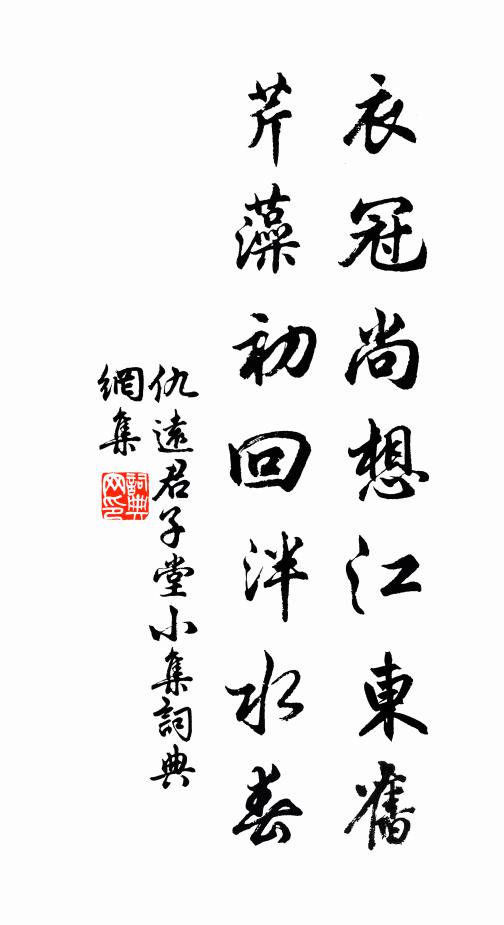 衣冠尚想江東舊
芹藻初回泮水春
仇遠君子堂小集詞典
網集
詞典
网印